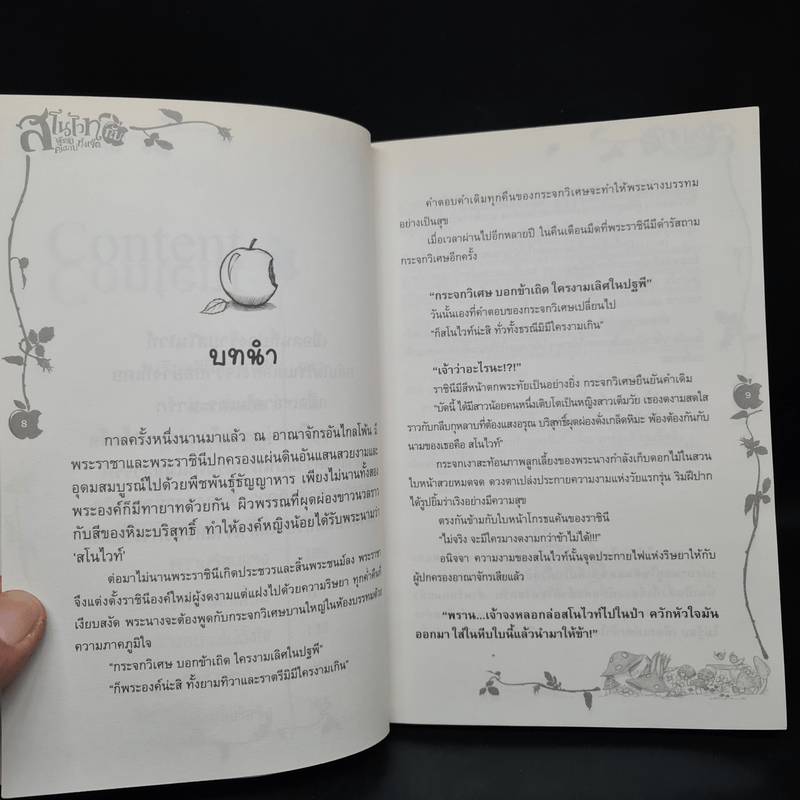 สโนไวท์
กับ
บทนำ
กาลครั้งหนึ่งนานมาแล้ว ณ อาณาจักรอันไกลโพ้น มี
พระราชาและพระราชินีปกครองแผ่นดินอันแสนสวยงามและ
อุดมสมบูรณ์ไปด้วยพืชพันธุ์ธัญญาหาร เพียงไม่นานทั้งสอง
พระองค์ก็มีทายาทด้วยกัน ผิวพรรณที่ผุดผ่องขาวนวลราว
กับสีของหิมะบริสุทธิ์ ทำให้องค์หญิงน้อยได้รับพระนามว่า
'สโนไวท์'
ต่อมาไม่นานพระราชินีเกิดประชวรและสิ้นพระชนม์ลง พระราชา
จึงแต่งตั้งราชินีองค์ใหม่ผู้งดงามแต่แฝงไปด้วยความริษยา ทุกค่ำคืนที่
เงียบสงัด พระนางจะต้องพูดกับกระจกวิเศษบานใหญ่ในห้องบรรทมด้วย
ความภาคภูมิใจ
“กระจกวิเศษ บอกข้าเถิด ใครงามเลิศในปฐพี”
“ก็พระองค์น่ะสิ ทั้งยามทิวาและราตรีมิมีใครงามเกิน”
8
คำตอบคำเดิมทุกคืนของกระจกวิเศษจะทำให้พระนางบรรทม
อย่างเป็นสุข
เมื่อเวลาผ่านไปอีกหลายปี ในคืนเดือนมืดที่พระราชินีมีดำรัสถาม
กระจกวิเศษอีกครั้ง
“กระจกวิเศษ บอกข้าเถิด ใครงามเลิศในปฐพี”
วันนั้นเองที่คำตอบของกระจกวิเศษเปลี่ยนไป
“ก็สโนไวท์น่ะสิ ทั่วทั้งธรณีมิมีใครงามเกิน”
“เจ้าว่าอะไรนะ!?!”
ราชินีมีสีหน้าตกพระทัยเป็นอย่างยิ่ง กระจกวิเศษยืนยันคำเดิม
“บัดนี้ ได้มีสาวน้อยคนหนึ่งเติบโตเป็นหญิงสาวเต็มวัย เธองดงามสดใส
ราวกับกลีบกุหลาบที่ต้องแสงอรุณ บริสุทธิ์ผุดผ่องดั่งเกล็ดหิมะ พ้องต้องกันกับ
นามของเธอคือ สโนไวท์”
กระจกเงาสะท้อนภาพลูกเลี้ยงของพระนางกำลังเก็บดอกไม้ในสวน
ใบหน้าสวยหมดจด ดวงตาเปล่งประกายความงามแห่งวัยแรกรุ่น ริมฝีปาก
ได้รูปยิ้มร่าเริงอย่างมีความสุข
ตรงกันข้ามกับใบหน้าโกรธแค้นของราชินี
“ไม่จริง จะมีใครมางดงามกว่าข้าไม่ได้!!!”
อนิจจา ความงามของสโนไวท์นั้นจุดประกายไฟแห่งริษยาให้กับ
ผู้ปกครองอาณาจักรเสียแล้ว
“พราน...เจ้าจงหลอกล่อสโนไวท์ไปในป่า ควักหัวใจมัน
ออกมา ใส่ในหีบใบนี้แล้วนำมาให้ข้า!”
9